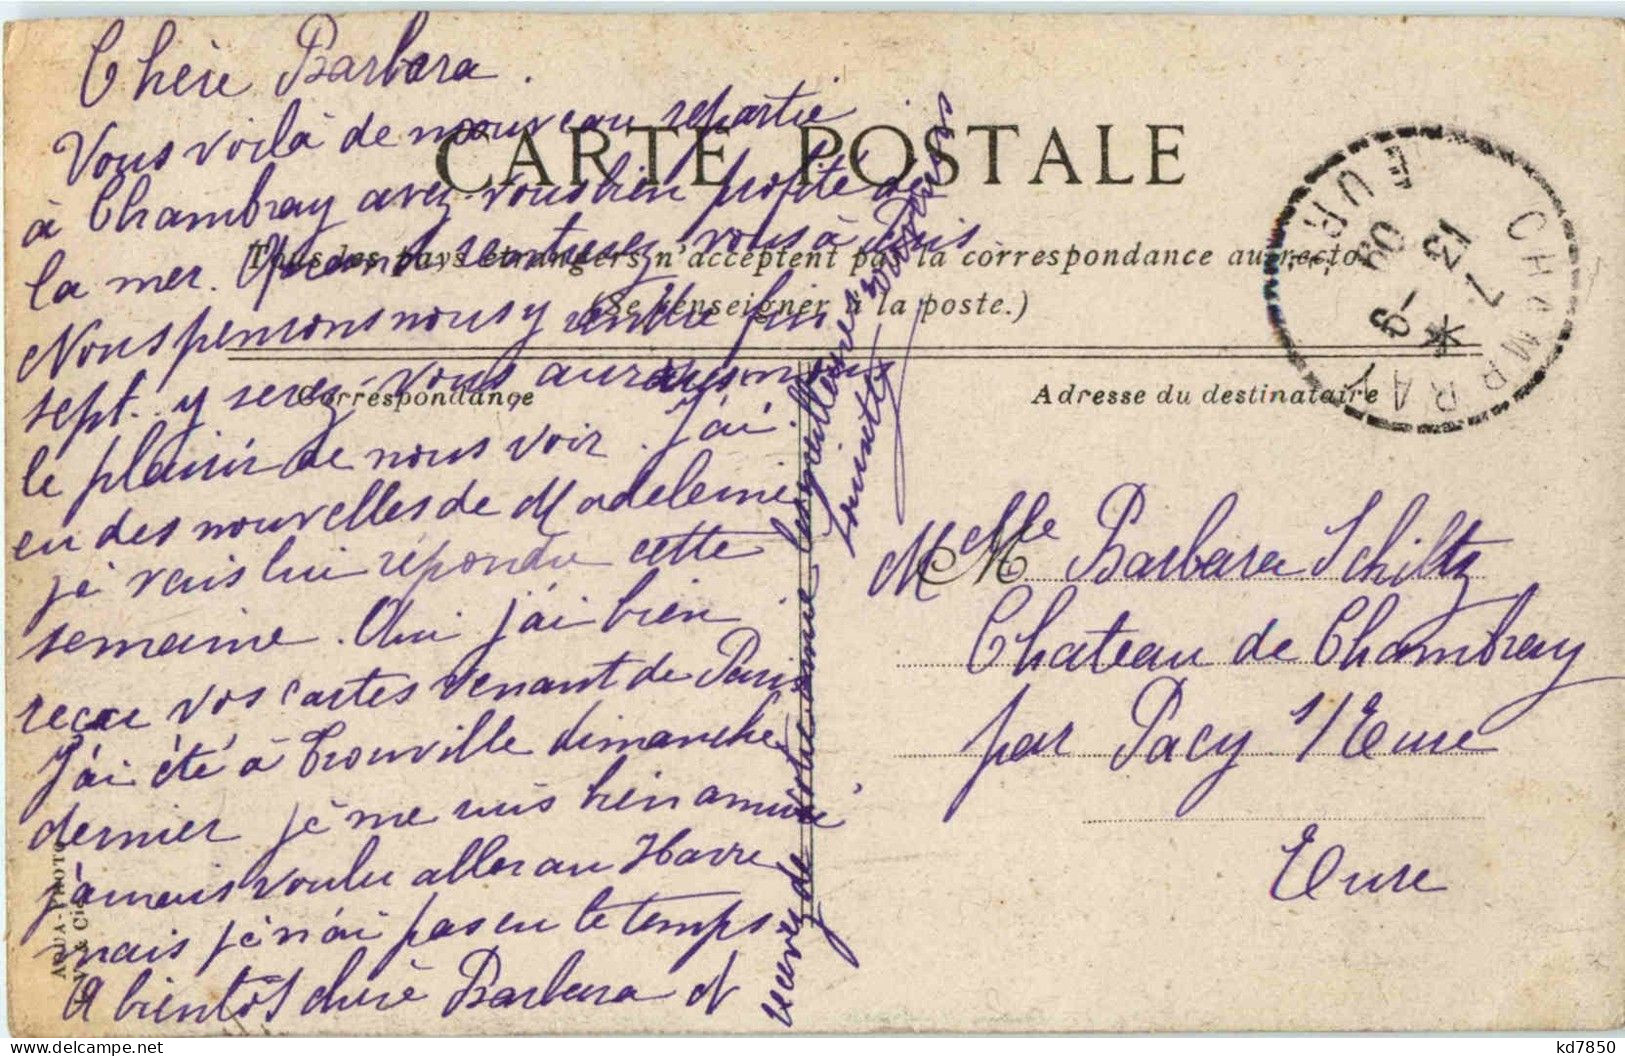 Chère Barbara.
Vous voilà de nouveau repartie
à Chambray avez-vous bien profité de
la mer. Quand rentrez vous à Paris
Nous pensons nous y rendre fin
sept. y serez-vous aurons nous
le plaisir de nous voir. J'ai
eu des nouvelles de Madeleine
je vais lui répondre cette
semaine. Oui j'ai bien
reçu vos cartes venant de Paris
J'ai été à Trouville dimanche
dernier je me suis bien amusé
j'amais voulu aller au Havre
mais je n'ai pas eu le temps
A bientôt chère Barbara et
recevez de votre amie les meilleures
CARTE POSTALE
Tous les pays étrangers n'acceptent pas la correspondance au recto
(Se renseigner à la poste.)
Correspondance
Adresse du destinataire
CHAMBRAY
EURE
13
7
-9
09
M
Melle Barbara Schiltz
Chateau de Chambray
par Pacy s/Eure
Eure
AQUA-PHOTO
& Cie
kd7850